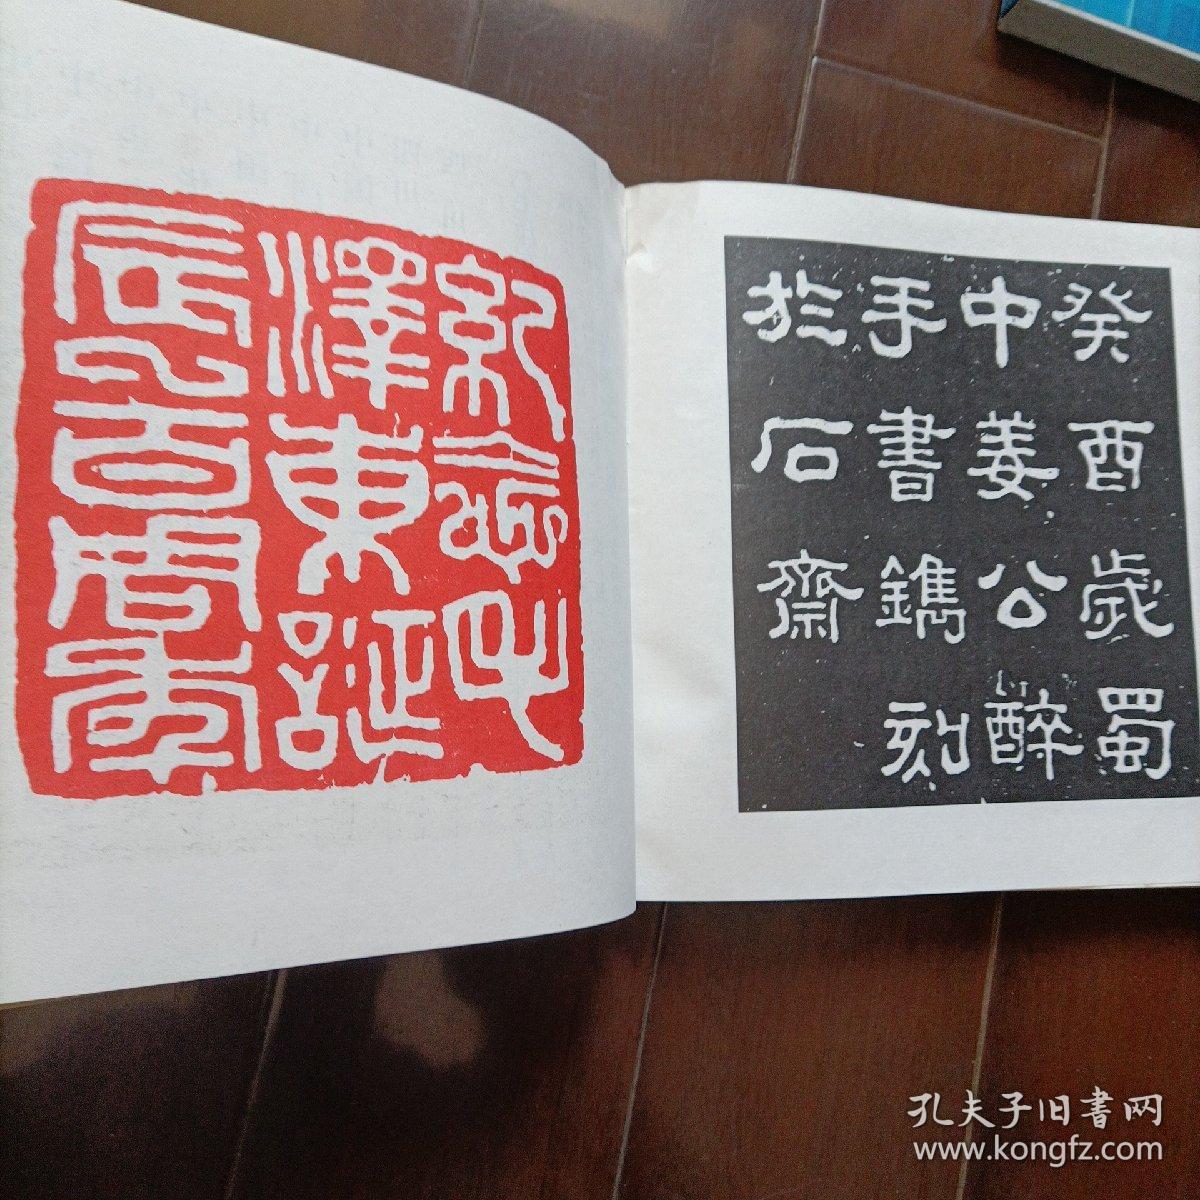 紀念毛
澤東誕
辰一百周年
癸酉歲蜀
中姜公醉
手書鐫刻
於石齋
孔夫子旧書网
www.kongfz.com